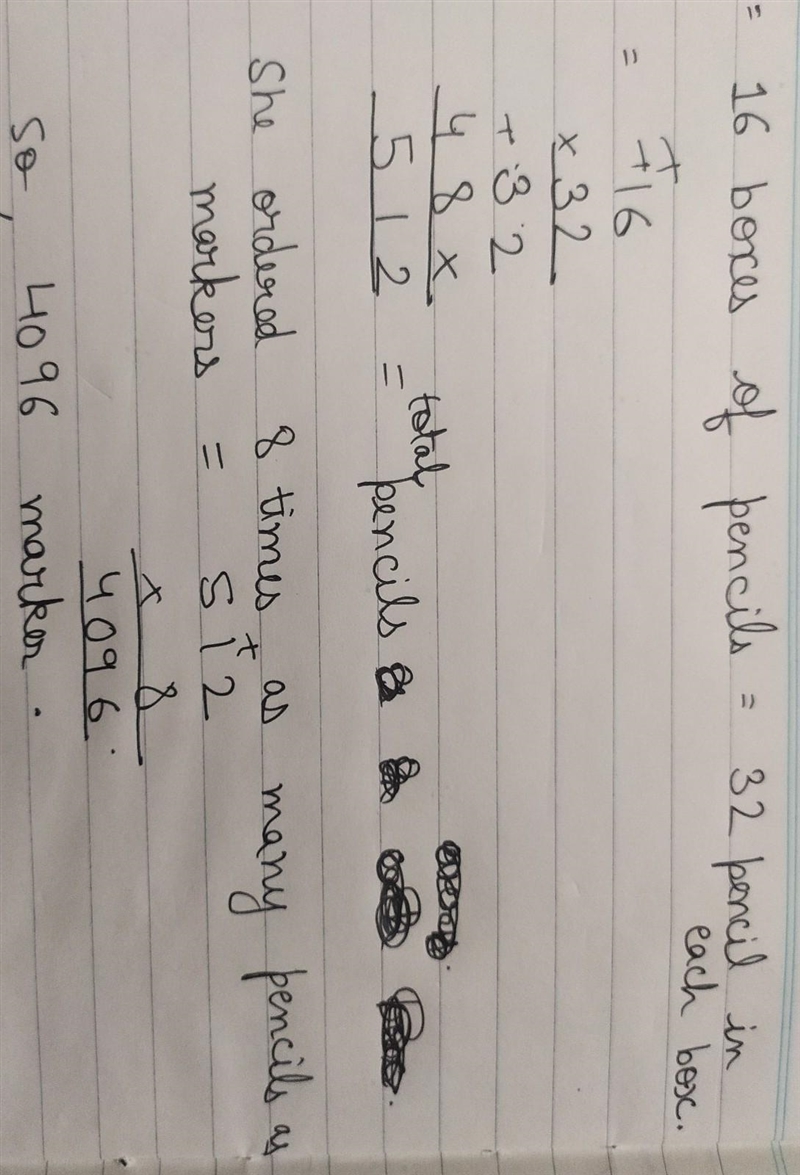 = 16 boxes of pencils = 32 pencil in
each box.
= +16
× 32
+ 32
48×
512 = total pencils
She ordered 8 times as many pencils as
markers = 512
× 8
4096.
So, 4096 marker.